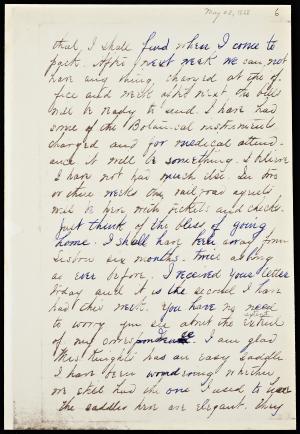 May 22, 1888
6
that, I shall find when I come to
pack. After next week we can not
have any thing charged at the of-
fice and week after next the bills
will be ready to send. I have had
some of the Botanical instruments
charged and for medical attend-
ance it will be something. I believe
I have not had much else. In two
or three weeks the railroad agents
will be here with tickets and checks.
Just think of the bliss of going
home. I shall have been away from
Lisbon six months. twice as long
as ever before. I received your letter
today and it is the second I have
had this week. You have no need
to worry you see about the extent
of my correspondence. I am glad
Miss Knights has an easy saddle
I have been wondering whether
we still had the one I used to have
The saddles here are elegant. They